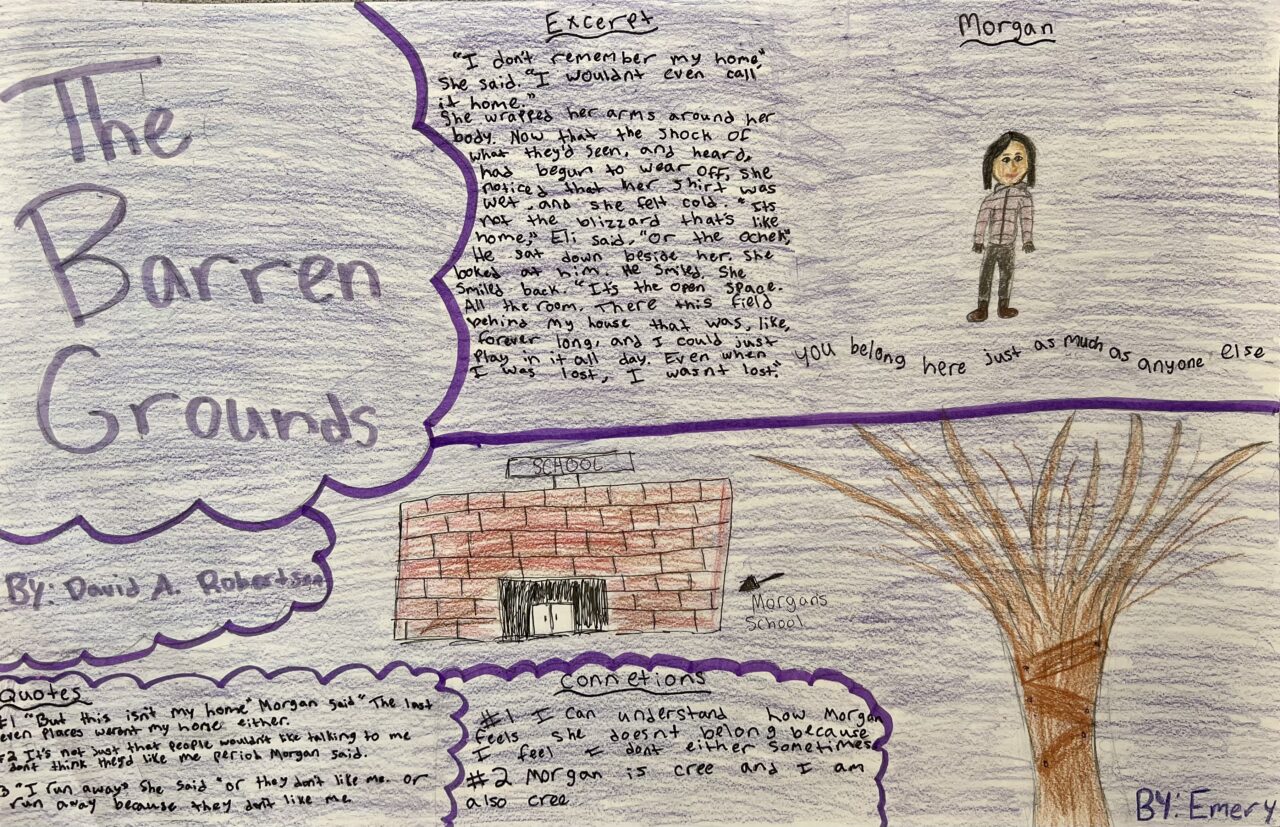 The
Barren
Grounds
BY: David A. Robertson
Excerpt
"I don't remember my home,"
She said. "I wouldnt even call
it home."
She wrapped her arms around her
body. Now that the shock of
what they'd seen, and heard,
had begun to wear off, she
noticed that her shirt was
wet, and she felt cold. "Its
not the blizzard that's like
home," Eli said, "Or the ochek",
He sat down beside her. She
looked at him. He smiled. She
Smiled back. "It's the open space.
All the room. There this field
behind my house that was, like,
forever long, and I could just
Play in it all day. Even when
I was lost, I wasnt lost."
Morgan
you belong here just as much as anyone else
SCHOOL
Morgans
School
Quotes
#1 "But this isn't my home" Morgan said "The last
seven Places werent my home either.
#2 It's not just that people wouldn't like talking to me
I dont think they'd like me period Morgan said.
#3 "I run away" She said "or they don't like me. or
I run away because they don't like me
connetions
#1 I can understand how Morgan
feels she doesnt belong because
I feel I dont either sometimes
#2 Morgan is cree and I am
also cree
BY: Emery